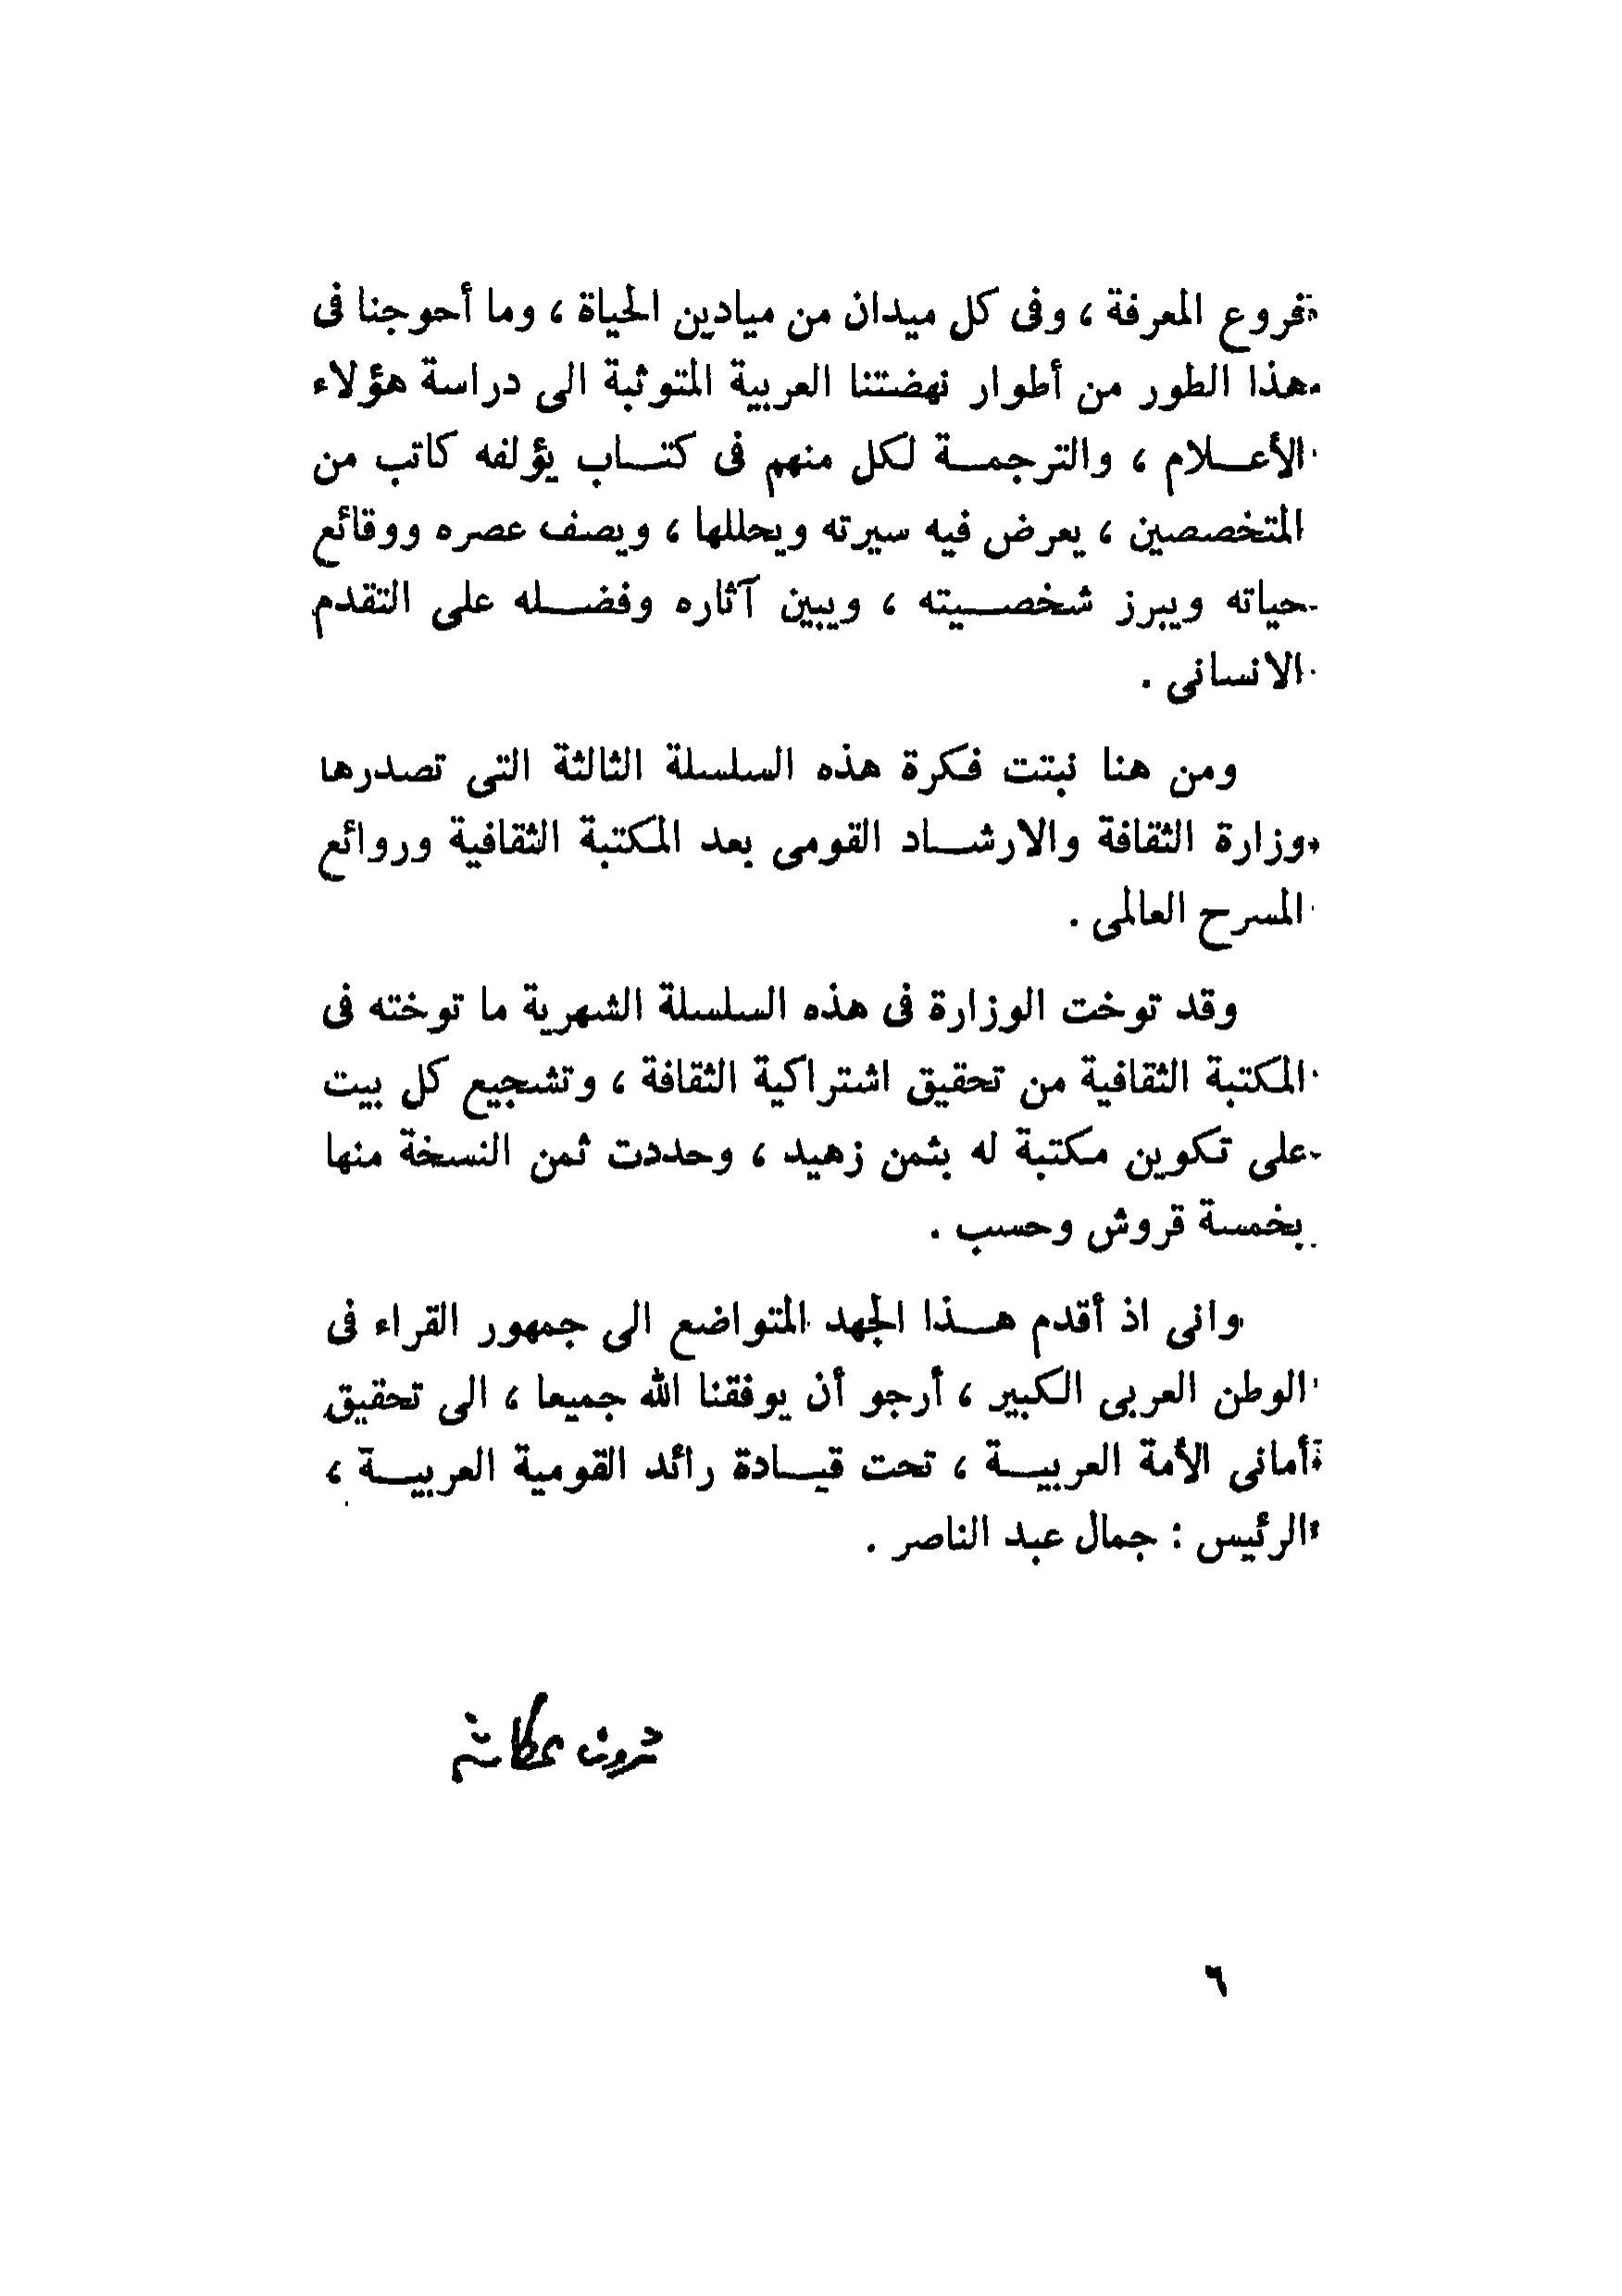 فروع المعرفة ، وفى كل ميدان من ميادين الحياة ، وما أحوجنا فى
هذا الطور من أطوار نهضتنا العربية المتوثبة الى دراسة هؤلاء
الأعـــلام ، والترجمـــة لكل منهم فى كتـــاب يؤلفه كاتب من
المتخصصين ، يعرض فيه سيرته ويحللها ، ويصف عصره ووقائع
حياته ويبرز شخصـــيته ، ويبين آثاره وفضـــله على التقدم
الانسانى .
ومن هنا نبتت فكرة هذه السلسلة الثالثة التى تصدرها
وزارة الثقافة والارشـــاد القومى بعد المكتبة الثقافية وروائع
المسرح العالمى .
وقد توخت الوزارة فى هذه السلسلة الشهرية ما توخته فى
المكتبة الثقافية من تحقيق اشتراكية الثقافة ، وتشجيع كل بيت
على تكوين مكتبة له بثمن زهيد ، وحددت ثمن النسخة منها
بخمسة قروش وحسب .
وانى اذ أقدم هـــذا الجهد المتواضع الى جمهور القراء فى
الوطن العربى الكبير ، أرجو أن يوفقنا الله جميعا ، الى تحقيق
أمانى الأمة العربيـــة ، تحت قيـــادة رائد القومية العربيـــة ،
الرئيس : جمال عبد الناصر .
ثروت عكاشة
٦